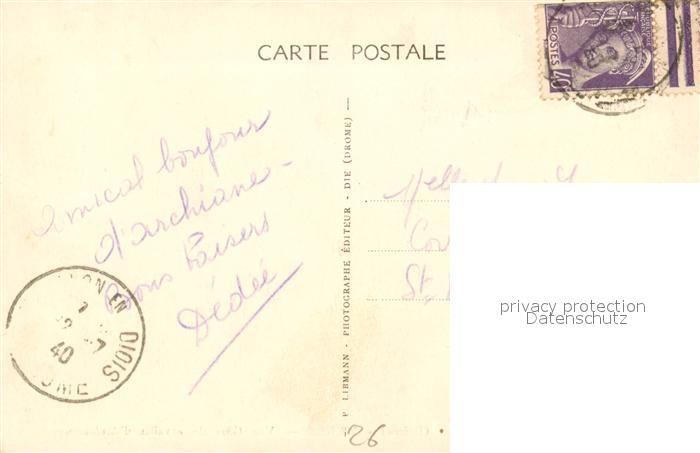 CARTE POSTALE
POSTES
40
Amical bonjour
d'archiane -
Bons baisers
Dédée
P LIBMANN - PHOTOGRAPHE ÉDITEUR - DIE (DROME) -
Melle
St.
privacy protection
Datenschutz
ON EN DIOIS
40
26